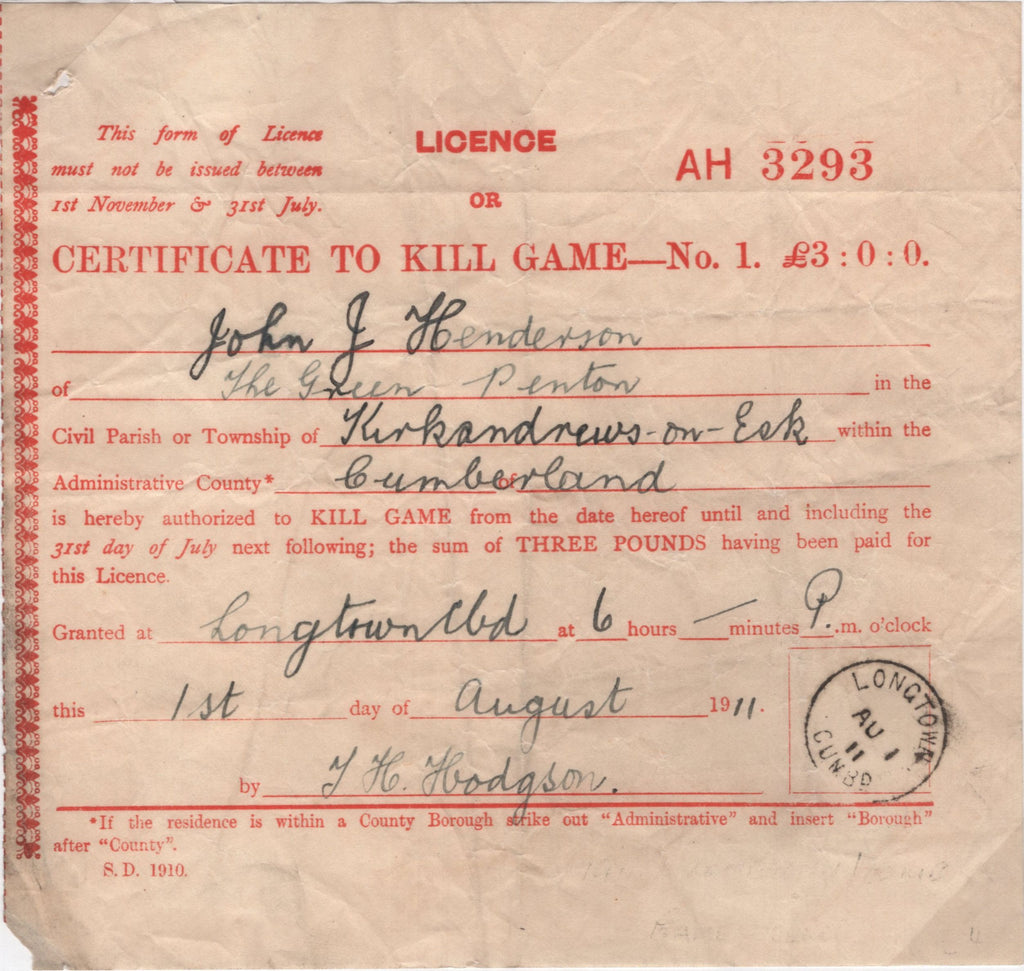 This form of Licence
must not be issued between
1st November & 31st July.
LICENCE
OR
AH 3293
CERTIFICATE TO KILL GAME—No. 1. £3 : 0 : 0.
John J Henderson
of The Green Penton in the
Civil Parish or Township of Kirkandrews-on-Esk within the
Administrative County* of Cumberland
is hereby authorized to KILL GAME from the date hereof until and including the
31st day of July next following; the sum of THREE POUNDS having been paid for
this Licence.
Granted at Longtown Cbd at 6 hours — minutes P.m. o'clock
this 1st day of August 1911.
LONGTOWN
AU 1
11
CUMBD
by T H. Hodgson.
*If the residence is within a County Borough strike out "Administrative" and insert "Borough"
after "County".
S.D. 1910.